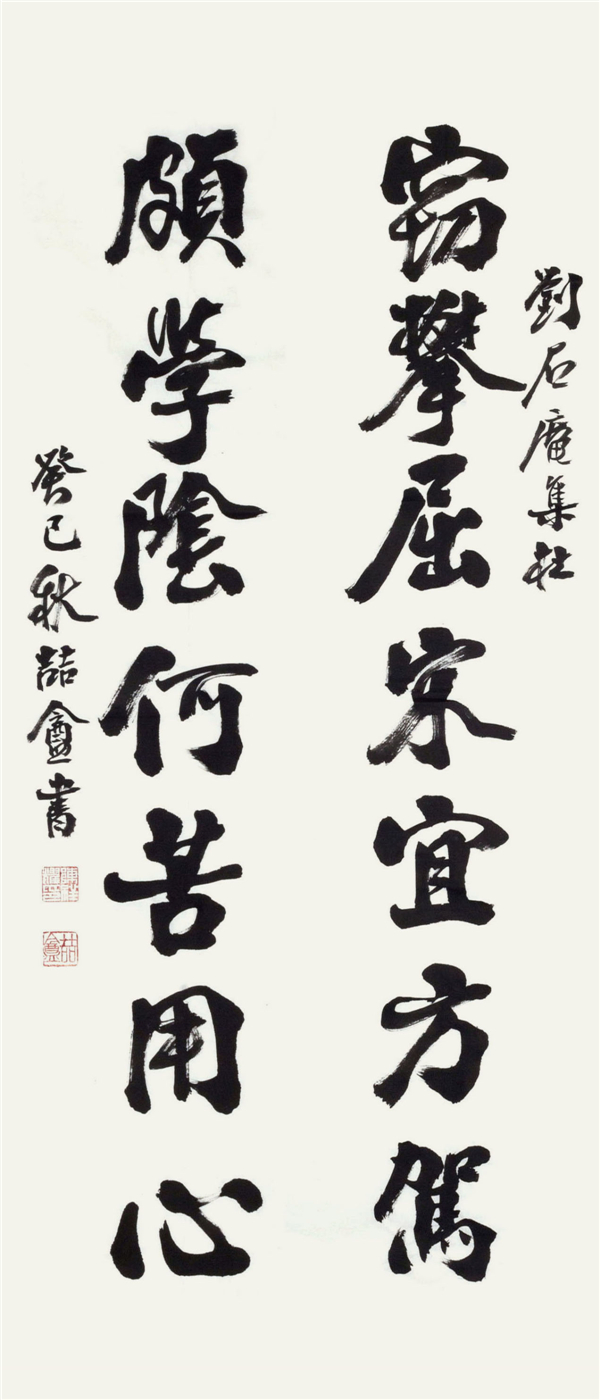 劉石庵集杜
窃攀屈宋宜方駕
頗學陰何苦用心
癸巳秋喆盦書